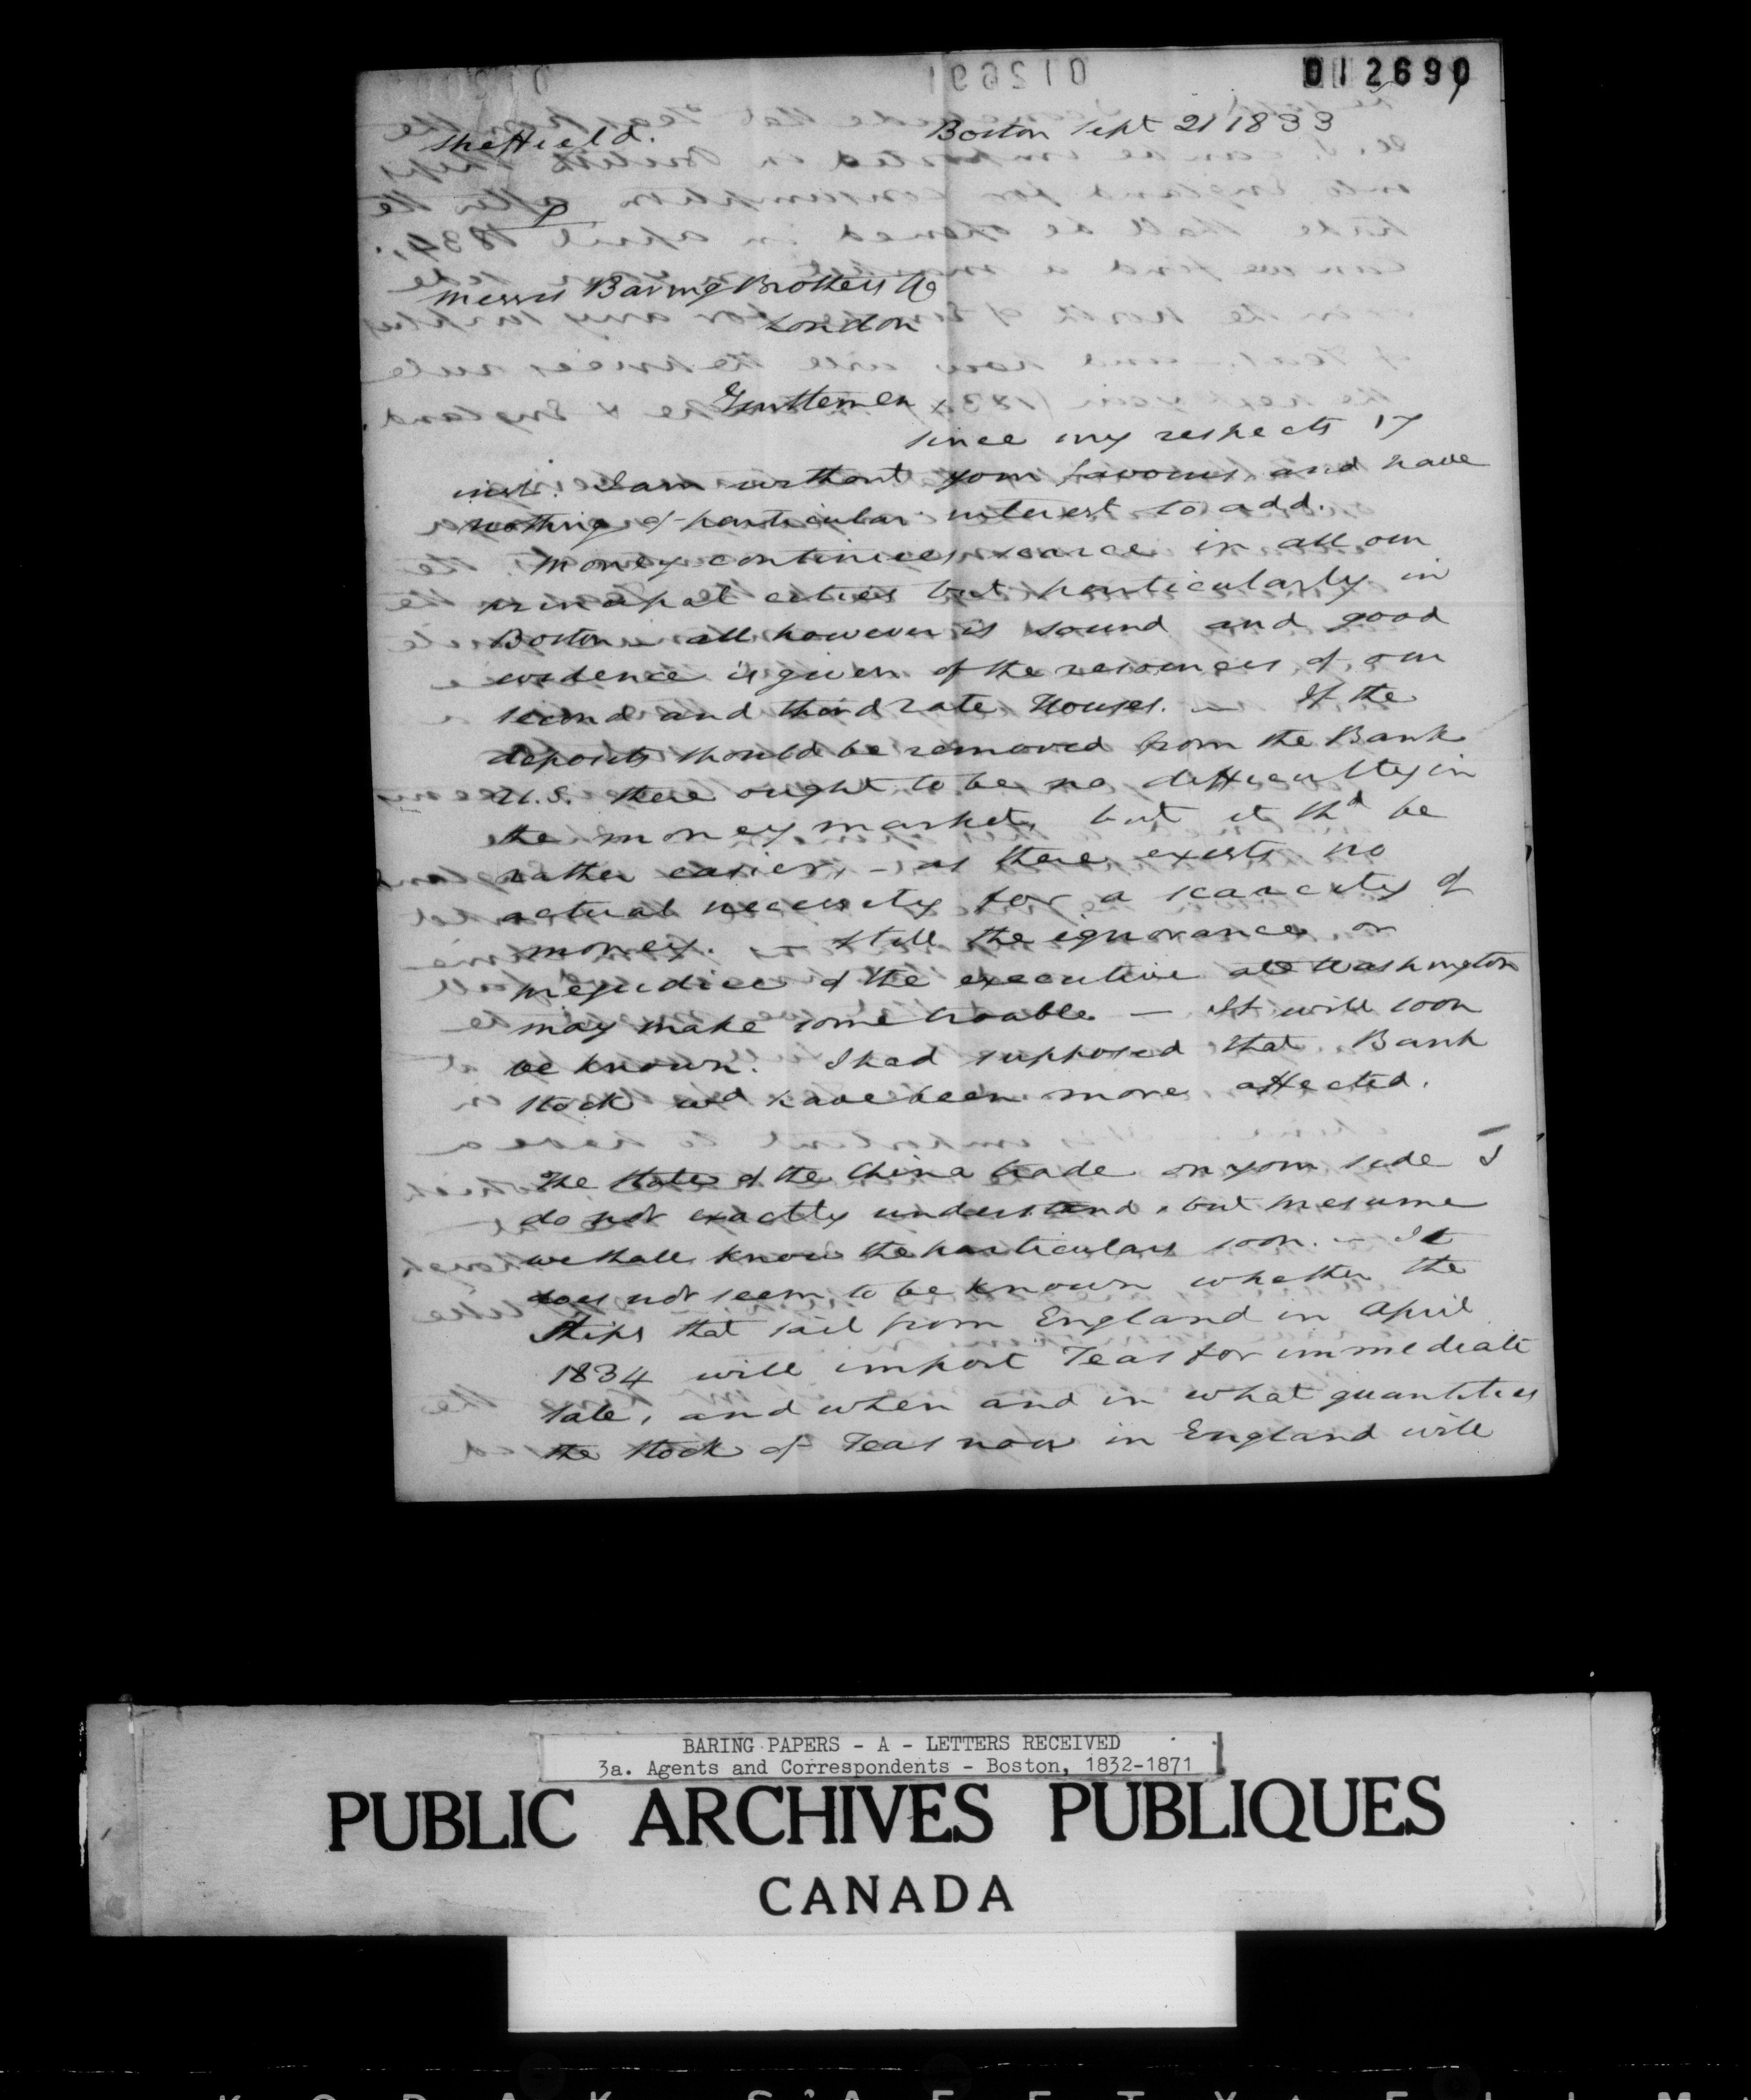 012690
Sheffield. Boston Sept 21 1833
P
Messrs Baring Brothers & Co
London
Gentlemen,
Since my respects 17
inst. I am without your favours, and have
nothing of particular interest to add.
Money continues scarce in all our
principal cities but particularly in
Boston - all however is sound and good
evidence is given of the resources of our
second and third rate Houses. — If the
deposits should be removed from the Bank
U.S. there ought to be no difficulty in
the money market, but it shd be
rather easier, - as there exists no
actual necessity for a scarcity of
money. — Still the ignorance or
prejudice of the executive at Washington
may make some trouble — It will soon
be known. I had supposed that Bank
Stock wd have been more affected.
The state of the China trade on your side I
do not exactly understand, but presume
we shall know the particulars soon. — It
does not seem to be known whether the
Ships that sail from England in April
1834 will import Teas for immediate
sale, and when and in what quantities
the stock of Teas now in England will
BARING PAPERS - A - LETTERS RECEIVED
3a. Agents and Correspondents - Boston, 1832-1871
PUBLIC ARCHIVES PUBLIQUES
CANADA